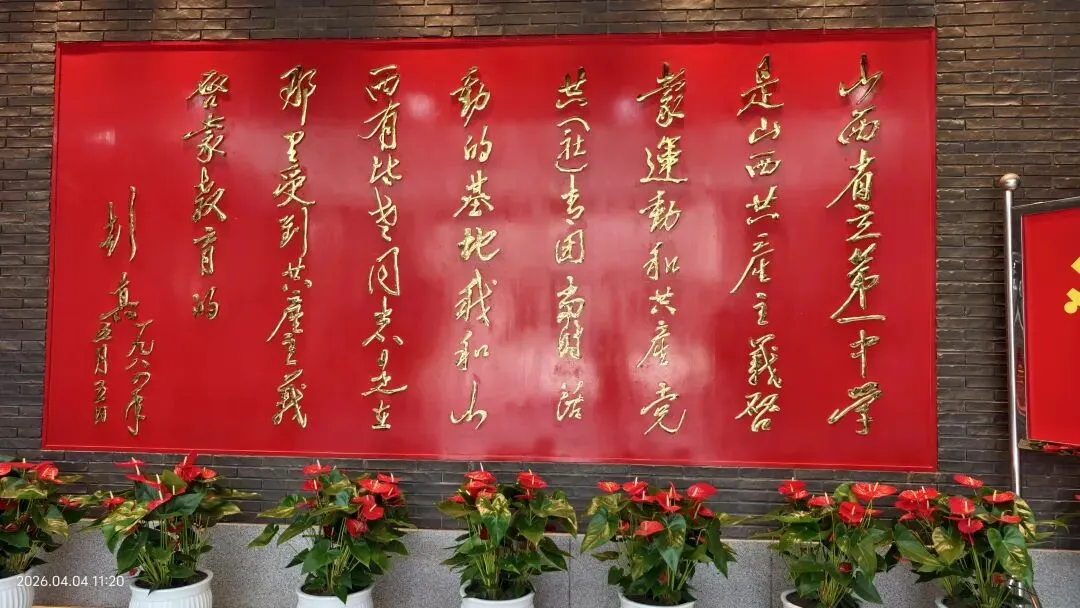 山西省立第一中學
是山西共産主義啓
蒙運動和共産党
共(社)青团當時活
動的基地我和山
西有些老同志是在
那里受到共産主義
啓蒙教育的
彭真
一九八四年
五月五日
2026.04.04 11:20